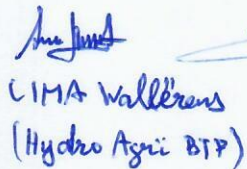 LIMA Wallërens
(Hydro Agri BTP)